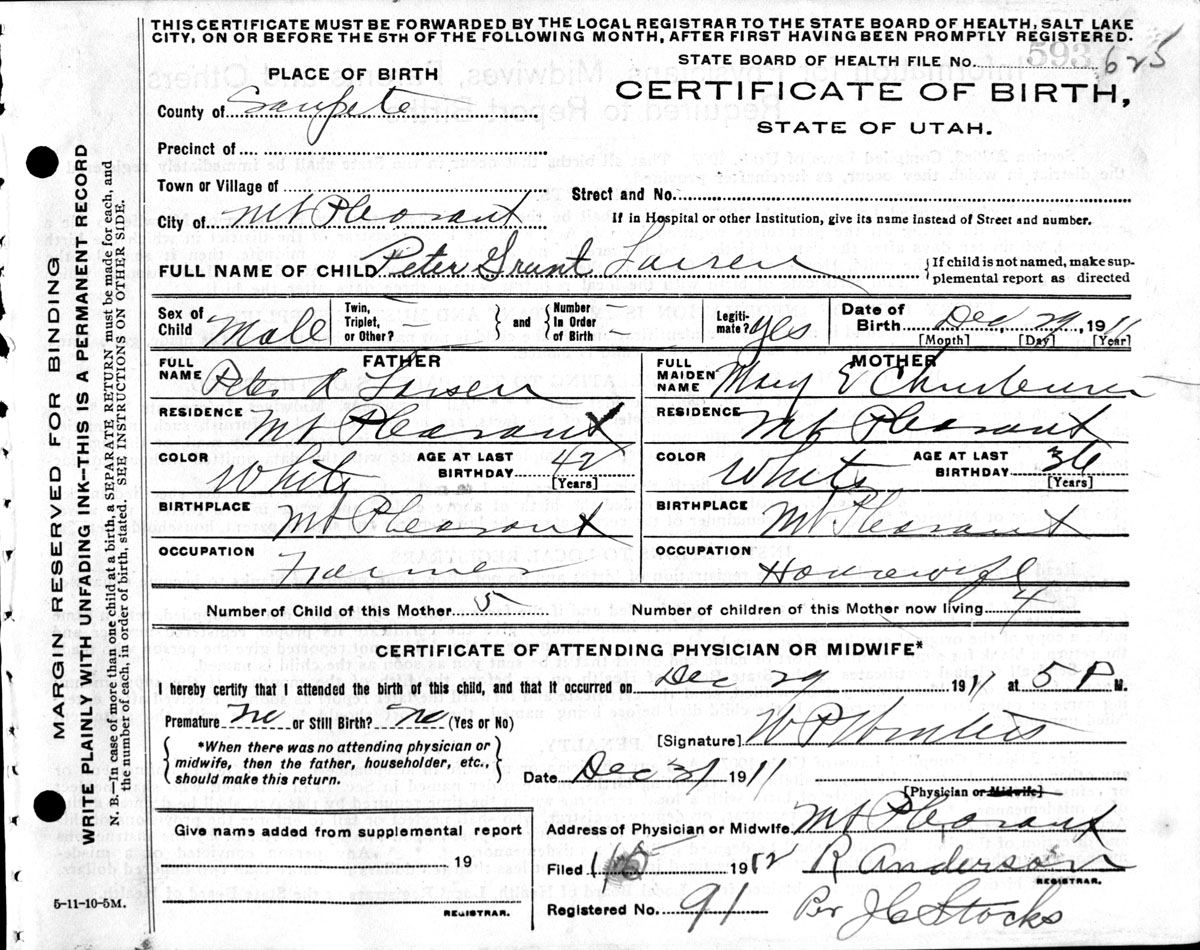 THIS CERTIFICATE MUST BE FORWARDED BY THE LOCAL REGISTRAR TO THE STATE BOARD OF HEALTH, SALT LAKE
CITY, ON OR BEFORE THE 5TH OF THE FOLLOWING MONTH, AFTER FIRST HAVING BEEN PROMPTLY REGISTERED.
STATE BOARD OF HEALTH FILE No. 593 625
PLACE OF BIRTH
CERTIFICATE OF BIRTH,
STATE OF UTAH.
County of Sanpete
Precinct of
Town or Village of
Street and No.
City of Mt Pleasant
If in Hospital or other Institution, give its name instead of Street and number.
FULL NAME OF CHILD Peter Grant Larsen
{If child is not named, make sup-
plemental report as directed
Sex of Child Male
Twin, Triplet, or Other? —
and
Number In Order of Birth —
Legiti-mate? Yes
Date of Birth Dec 29 1911
[Month] [Day] [Year]
FATHER
FULL NAME Peter A Larsen
MOTHER
FULL MAIDEN NAME Mary E
RESIDENCE Mt Pleasant
RESIDENCE Mt Pleasant
COLOR White
AGE AT LAST BIRTHDAY 42 [Years]
COLOR White
AGE AT LAST BIRTHDAY 36 [Years]
BIRTHPLACE Mt Pleasant
BIRTHPLACE Mt Pleasant
OCCUPATION Farmer
OCCUPATION Housewife
Number of Child of this Mother 5
Number of children of this Mother now living 4
CERTIFICATE OF ATTENDING PHYSICIAN OR MIDWIFE*
I hereby certify that I attended the birth of this child, and that it occurred on Dec 29 1911 at 5 P M.
Premature? no or Still Birth? no (Yes or No)
*When there was no attending physician or
midwife, then the father, householder, etc.,
should make this return.
[Signature] W P Winters
Date Dec 31 1911
[Physician or Midwife]
Give name added from supplemental report
19
REGISTRAR.
Address of Physician or Midwife Mt Pleasant
Filed 1 1912 R Anderson
REGISTRAR.
Registered No. 91 Per J C Stocks
5-11-10-5M.
MARGIN RESERVED FOR BINDING
WRITE PLAINLY WITH UNFADING INK—THIS IS A PERMANENT RECORD
N. B.—In case of more than one child at a birth, a SEPARATE RETURN must be made for each, and
the number of each, in order of birth, stated. SEE INSTRUCTIONS ON OTHER SIDE.